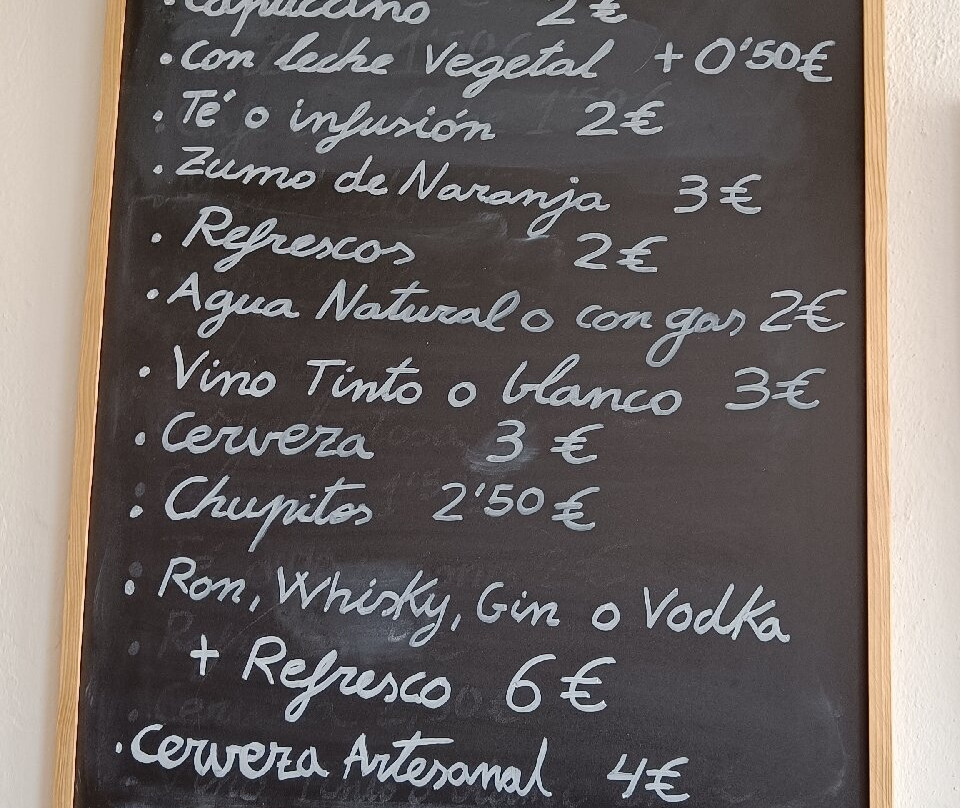 · Capuccino 2€
· con leche Vegetal + 0'50€
· Té o infusión 2€
· Zumo de Naranja 3€
· Refrescos 2€
· Agua Natural o con gas 2€
· Vino Tinto o blanco 3€
· Cerveza 3 €
· Chupitos 2'50 €
· Ron, Whisky, Gin o Vodka
+ Refresco 6 €
· Cerveza Artesanal 4€